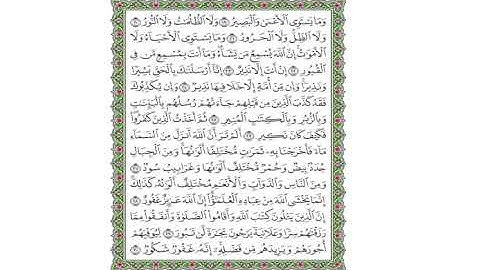 وَمَا يَسْتَوِى ٱلْأَعْمَىٰ وَٱلْبَصِيرُ ١٩ وَلَا ٱلظُّلُمَـٰتُ وَلَا ٱلنُّورُ ٢٠
وَلَا ٱلظِّلُّ وَلَا ٱلْحَرُورُ ٢١ وَمَا يَسْتَوِى ٱلْأَحْيَآءُ وَلَا
ٱلْأَمْوَٰتُ إِنَّ ٱللَّهَ يُسْمِعُ مَن يَشَآءُ وَمَآ أَنتَ بِمُسْمِعٍ مَّن فِى
ٱلْقُبُورِ ٢٢ إِنْ أَنتَ إِلَّا نَذِيرٌ ٢٣ إِنَّآ أَرْسَلْنَـٰكَ بِٱلْحَقِّ بَشِيرًا
وَنَذِيرًا وَإِن مِّنْ أُمَّةٍ إِلَّا خَلَا فِيهَا نَذِيرٌ ٢٤ وَإِن يُكَذِّبُوكَ
فَقَدْ كَذَّبَ ٱلَّذِينَ مِن قَبْلِهِمْ جَآءَتْهُمْ رُسُلُهُم بِٱلْبَيِّنَـٰتِ
وَبِٱلزُّبُرِ وَبِٱلْكِتَـٰبِ ٱلْمُنِيرِ ٢٥ ثُمَّ أَخَذْتُ ٱلَّذِينَ كَفَرُوا۟
فَكَيْفَ كَانَ نَكِيرِ ٢٦ أَلَمْ تَرَ أَنَّ ٱللَّهَ أَنزَلَ مِنَ ٱلسَّمَآءِ
مَآءً فَأَخْرَجْنَا بِهِۦ ثَمَرَٰتٍ مُّخْتَلِفًا أَلْوَٰنُهَا وَمِنَ ٱلْجِبَالِ
جُدَدٌۢ بِيضٌ وَحُمْرٌ مُّخْتَلِفٌ أَلْوَٰنُهَا وَغَرَابِيبُ سُودٌ ٢٧
وَمِنَ ٱلنَّاسِ وَٱلدَّوَآبِّ وَٱلْأَنْعَـٰمِ مُخْتَلِفٌ أَلْوَٰنُهُۥ كَذَٰلِكَ
إِنَّمَا يَخْشَى ٱللَّهَ مِنْ عِبَادِهِ ٱلْعُلَمَـٰٓؤُا۟ إِنَّ ٱللَّهَ عَزِيزٌ غَفُورٌ ٢٨
إِنَّ ٱلَّذِينَ يَتْلُونَ كِتَـٰبَ ٱللَّهِ وَأَقَامُوا۟ ٱلصَّلَوٰةَ وَأَنفَقُوا۟ مِمَّا
رَزَقْنَـٰهُمْ سِرًّا وَعَلَانِيَةً يَرْجُونَ تِجَـٰرَةً لَّن تَبُورَ ٢٩ لِيُوَفِّيَهُمْ
أُجُورَهُمْ وَيَزِيدَهُم مِّن فَضْلِهِۦٓ إِنَّهُۥ غَفُورٌ شَكُورٌ ٣٠